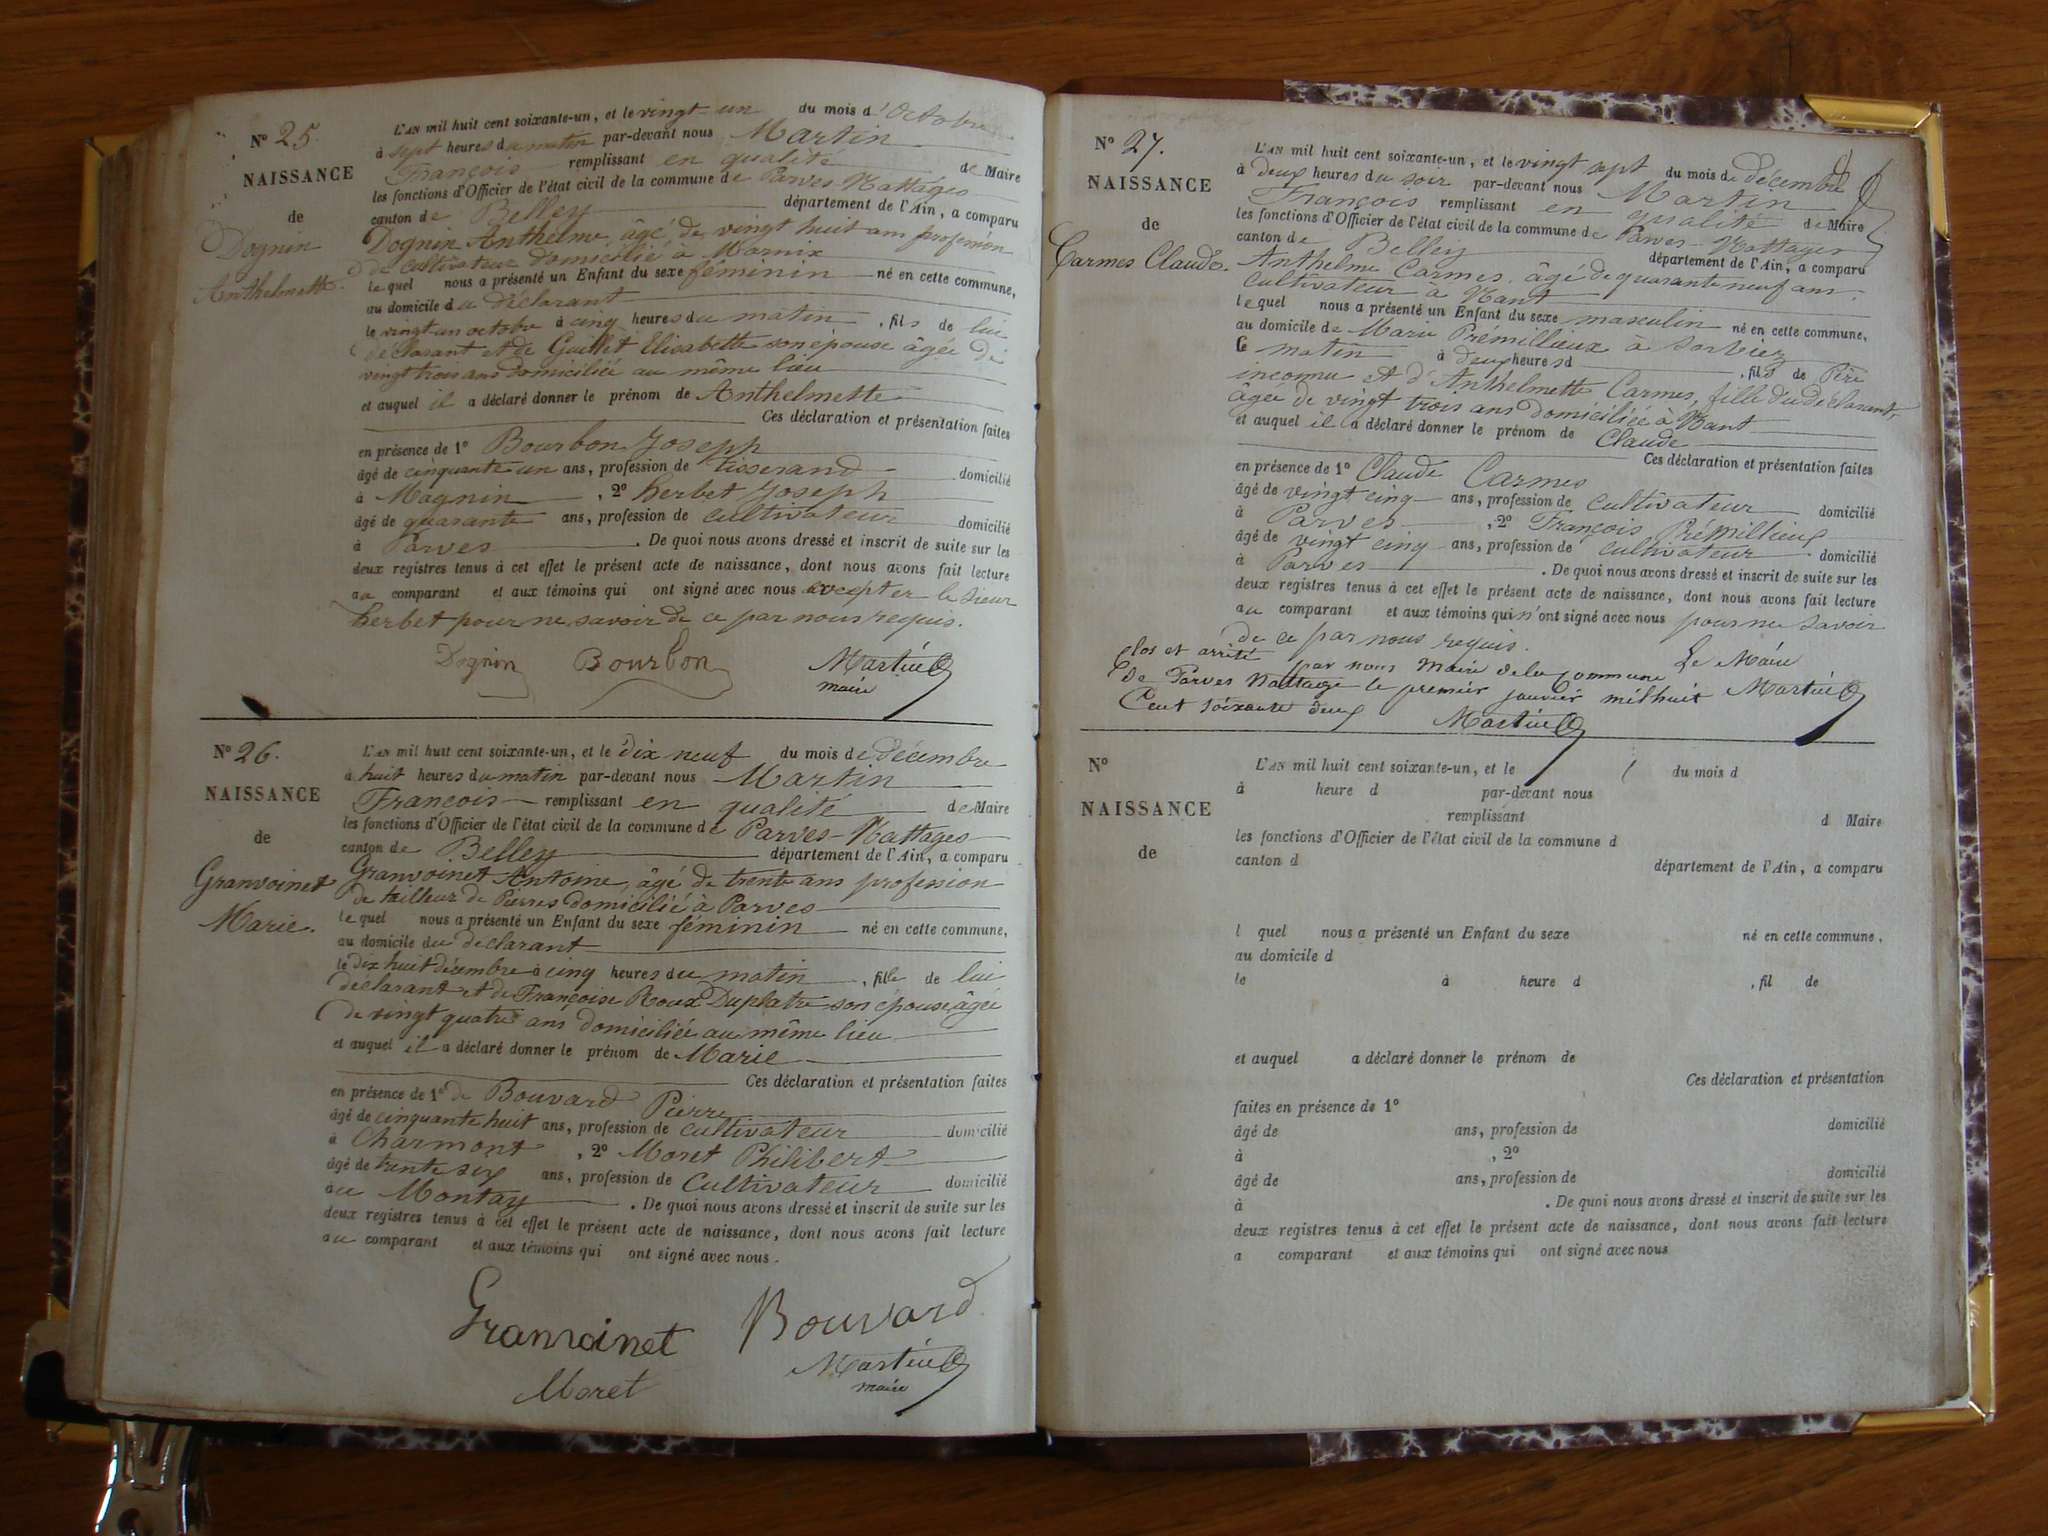 N° 25.
NAISSANCE
de
Dognin
Anthelmette.
L'AN mil huit cent soixante-un, et le vingt un du mois d'Octobre
à sept heures du matin par-devant nous Martin
François remplissant en qualité de Maire
les fonctions d'Officier de l'état civil de la commune de Parves-Nattages
canton de Belley département de l'Ain, a comparu
Dognin Anthelme, âgé de vingt huit ans profession
de cultivateur domicilié à
le quel nous a présenté un Enfant du sexe féminin né en cette commune,
au domicile du déclarant
le vingt un octobre à cinq heures du matin, fils de lui
déclarant et de Guillet Elisabette son épouse âgée de
vingt trois ans domiciliée au même lieu
et auquel il a déclaré donner le prénom de Anthelmette
Ces déclaration et présentation faites
en présence de 1° Bourbon Joseph
âgé de cinquante un ans, profession de tisserand domicilié
à Magnin, 2° herbet Joseph
âgé de quarante ans, profession de cultivateur domicilié
à Parves. De quoi nous avons dressé et inscrit de suite sur les
deux registres tenus à cet effet le présent acte de naissance, dont nous avons fait lecture
au comparant et aux témoins qui ont signé avec nous excepter le sieur
herbet pour ne savoir de ce par nous requis.
Dognin Bourbon Martin
maire
N° 26.
NAISSANCE
de
Granvoinet
Marie.
L'AN mil huit cent soixante-un, et le dix neuf du mois de décembre
à huit heures du matin par-devant nous Martin
François remplissant en qualité de Maire
les fonctions d'Officier de l'état civil de la commune de Parves-Nattages
canton de Belley département de l'Ain, a comparu
Granvoinet Antoine, âgé de trente ans profession
de tailleur de Pierres domicilié à Parves
le quel nous a présenté un Enfant du sexe féminin né en cette commune,
au domicile du déclarant
le dix huit décembre à cinq heures du matin, fille de lui
déclarant et de Françoise Roux Duplatre son épouse âgée
de vingt quatre ans domiciliée au même lieu
et auquel il a déclaré donner le prénom de Marie
Ces déclaration et présentation faites
en présence de 1° de Bouvard Pierre
âgé de cinquante huit ans, profession de cultivateur domicilié
à Charmont, 2° Moret Philibert
âgé de trente six ans, profession de Cultivateur domicilié
au Montay. De quoi nous avons dressé et inscrit de suite sur les
deux registres tenus à cet effet le présent acte de naissance, dont nous avons fait lecture
au comparant et aux témoins qui ont signé avec nous.
Granvoinet Bouvard
Moret Martin
maire
N° 27.
NAISSANCE
de
Carmes Claude.
L'AN mil huit cent soixante-un, et le vingt sept du mois de décembre
à deux heures du soir par-devant nous Martin
François remplissant en qualité de Maire
les fonctions d'Officier de l'état civil de la commune de Parves-Nattages
canton de Belley département de l'Ain, a comparu
Anthelme Carmes, âgé de quarante neuf ans,
cultivateur à Nant
le quel nous a présenté un Enfant du sexe masculin né en cette commune,
au domicile de Marie Prémillieux à Sorbier
le matin à deux heures d, fils de Père
inconnu et d'Anthelmette Carmes, fille du déclarant,
âgée de vingt trois ans domiciliée à Nant
et auquel il a déclaré donner le prénom de Claude
Ces déclaration et présentation faites
en présence de 1° Claude Carmes
âgé de vingt cinq ans, profession de cultivateur domicilié
à Parves, 2° François Prémillieux
âgé de vingt cinq ans, profession de cultivateur domicilié
à Parves. De quoi nous avons dressé et inscrit de suite sur les
deux registres tenus à cet effet le présent acte de naissance, dont nous avons fait lecture
au comparant et aux témoins qui n'ont signé avec nous pour ne savoir
de ce par nous requis.
Le Maire
Martin
clos et arrêté par nous Maire de la commune
de Parves Nattage le premier janvier mil huit
Cent soixante deux Martin
N°
NAISSANCE
de
L'AN mil huit cent soixante-un, et le du mois d
à heure d par-devant nous
remplissant d Maire
les fonctions d'Officier de l'état civil de la commune d
canton d département de l'Ain, a comparu
l quel nous a présenté un Enfant du sexe né en cette commune,
au domicile d
le à heure d, fil de
et auquel a déclaré donner le prénom de
Ces déclaration et présentation
faites en présence de 1°
âgé de ans, profession de domicilié
à, 2°
âgé de ans, profession de domicilié
à. De quoi nous avons dressé et inscrit de suite sur les
deux registres tenus à cet effet le présent acte de naissance, dont nous avons fait lecture
a comparant et aux témoins qui ont signé avec nous